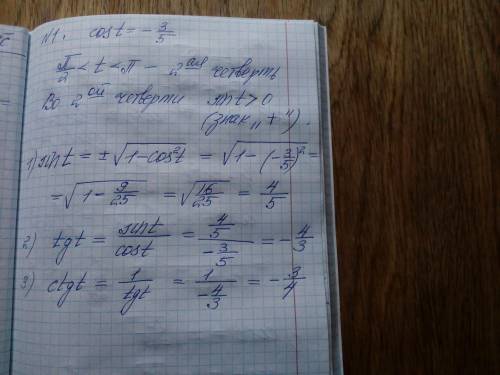 N1. cos t = - 3/5
π/2 < t < π - 2ая четверть
Во 2ой четверти sin t > 0
(знак „+").
1) sin t = ±√(1-cos²t) = √(1-(-3/5)²) =
= √(1 - 9/25) = √(16/25) = 4/5
2) tg t = sin t/cos t = (4/5)/(-3/5) = - 4/3
3) ctg t = 1/tg t = 1/(-4/3) = - 3/4